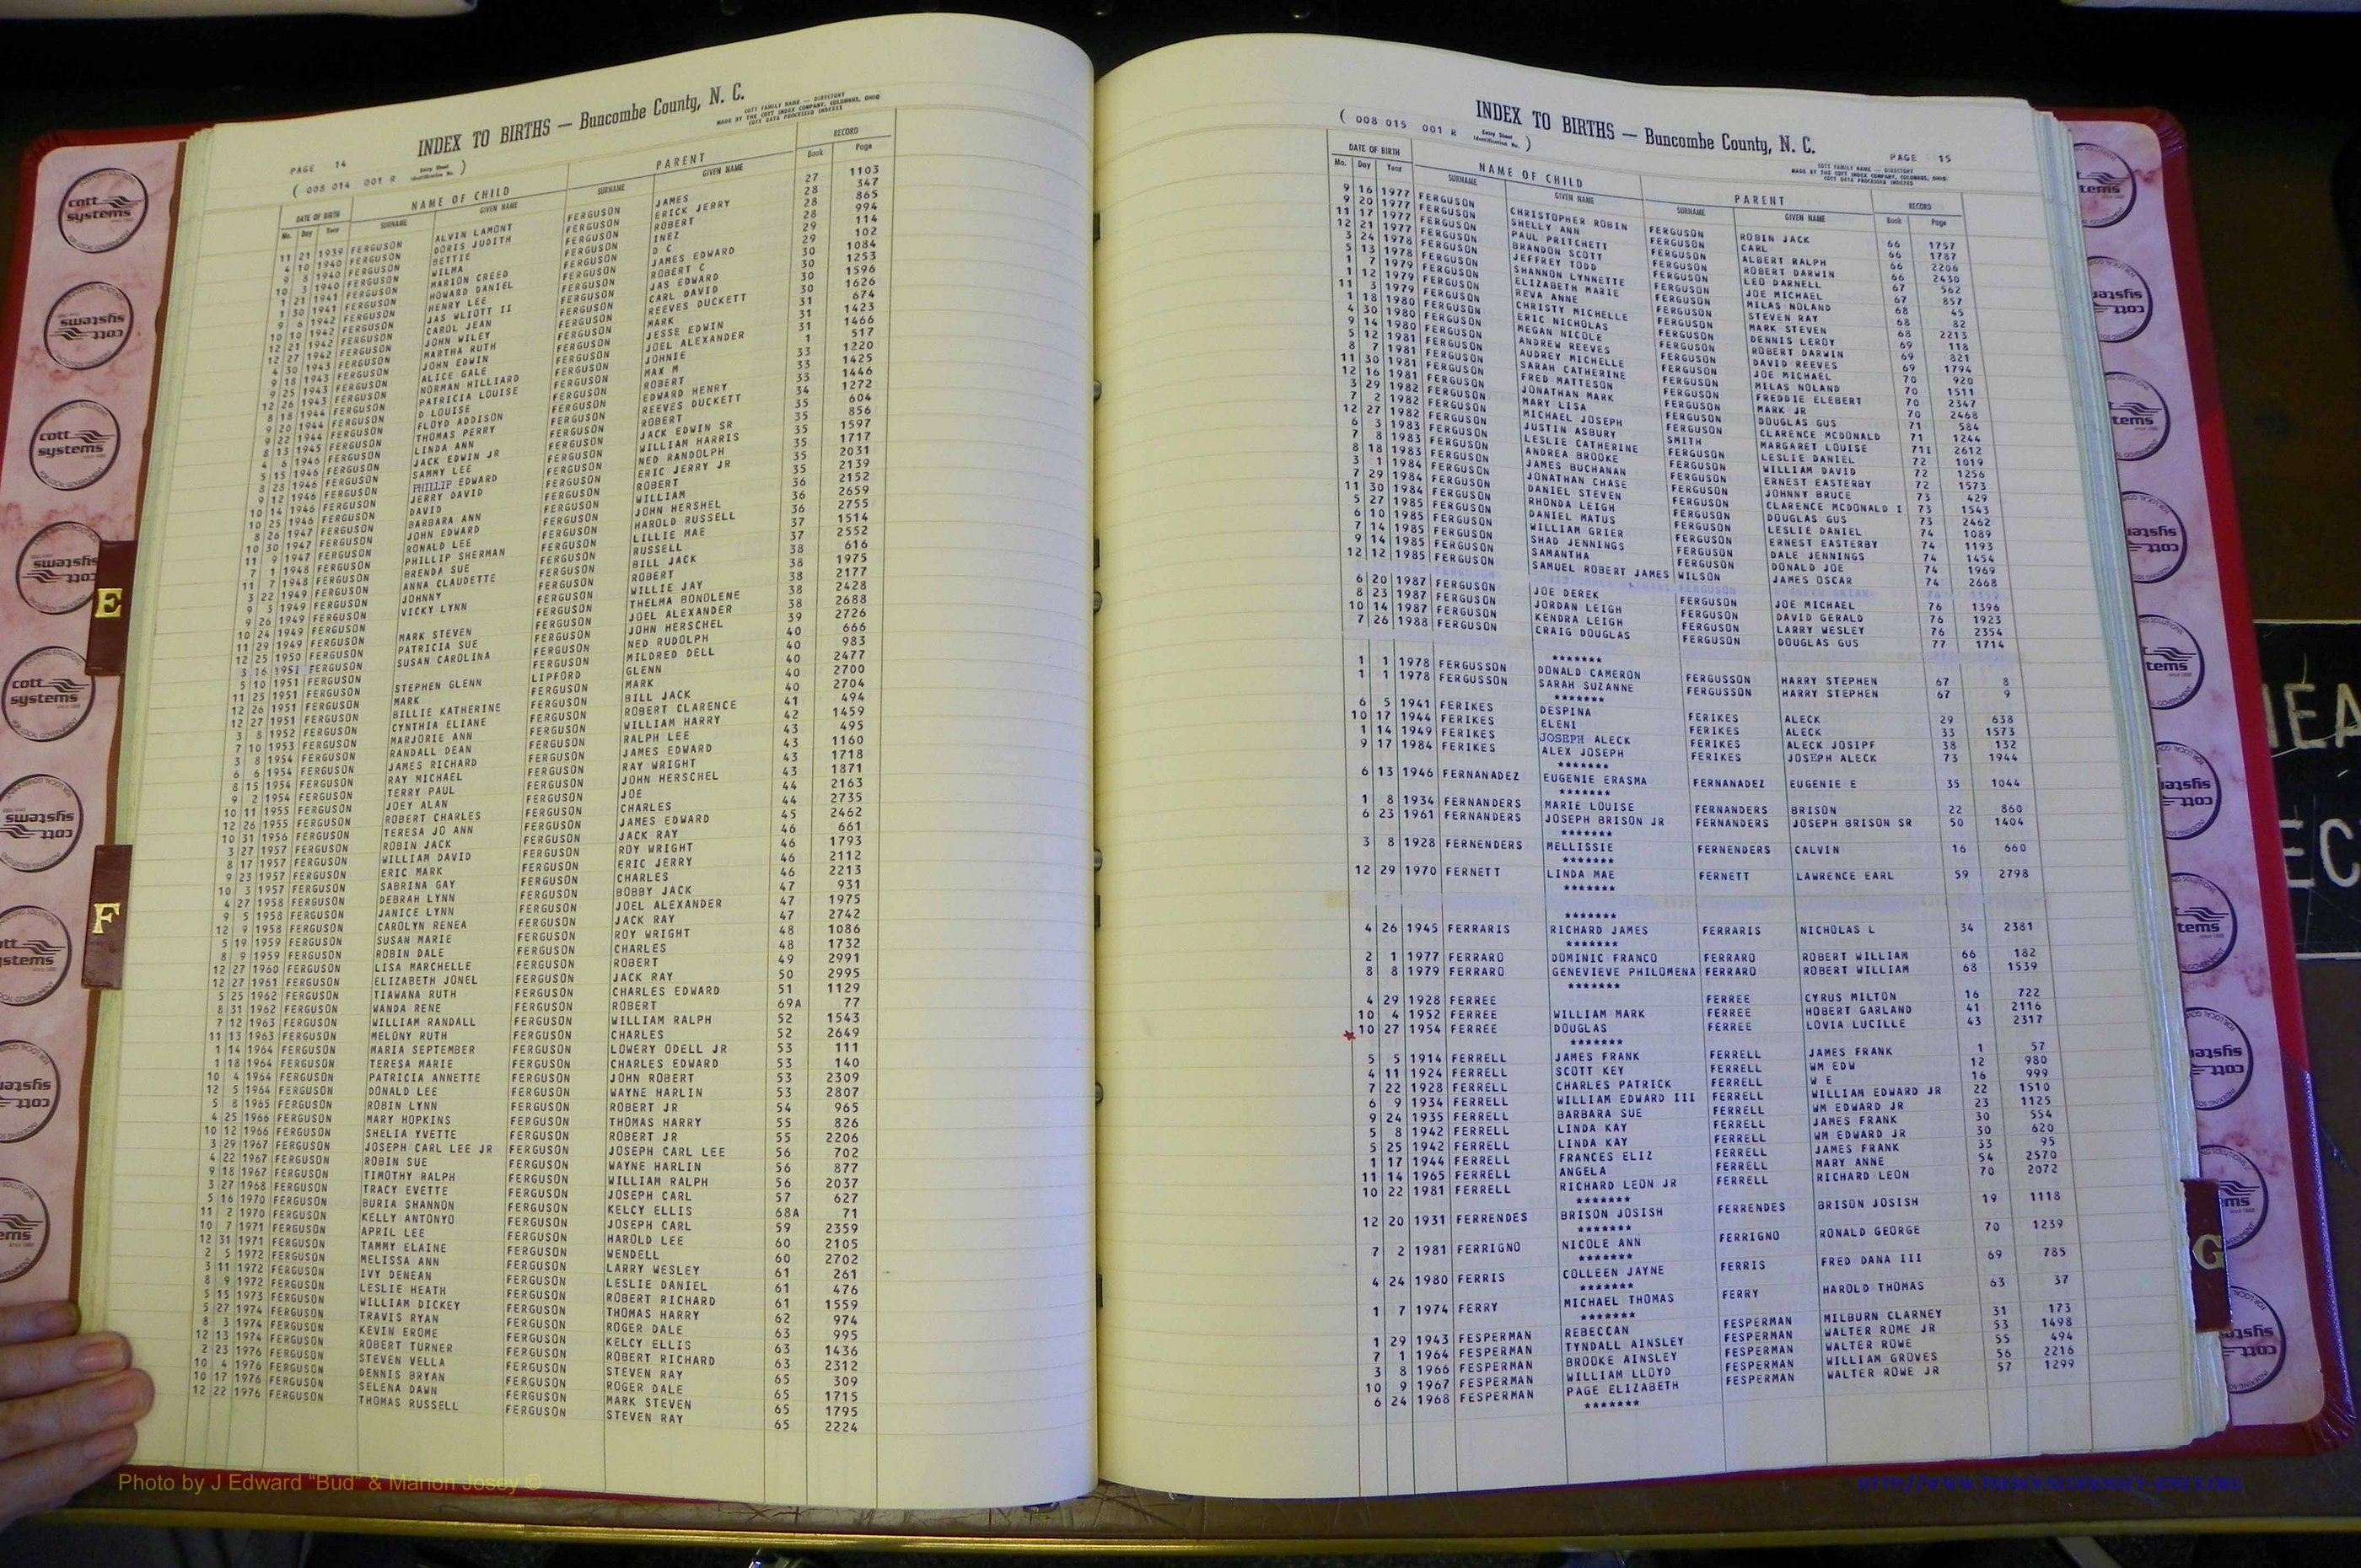 INDEX TO BIRTHS — Buncombe County, N. C.
COTT FAMILY NAME — DIRECTORY
MADE BY THE COTT INDEX COMPANY, COLUMBUS, OHIO
COTT DATA PROCESSED INDEXES
PAGE 14
( 008 014 001 R Entry Sheet Identification No. )
DATE OF BIRTH NAME OF CHILD PARENT RECORD
Mo. Day Year SURNAME GIVEN NAME SURNAME GIVEN NAME Book Page
11 21 1939 FERGUSON ALVIN LAMONT FERGUSON JAMES 27 1103
4 10 1940 FERGUSON DORIS JUDITH FERGUSON ERICK JERRY 28 347
9 8 1940 FERGUSON BETTIE FERGUSON ROBERT 28 865
10 3 1940 FERGUSON WILMA FERGUSON INEZ 28 994
1 21 1941 FERGUSON MARION CREED FERGUSON D C 29 114
1 30 1941 FERGUSON HOWARD DANIEL FERGUSON JAMES EDWARD 29 102
9 6 1942 FERGUSON HENRY LEE FERGUSON ROBERT C 30 1084
10 10 1942 FERGUSON JAS WLIOTT II FERGUSON JAS EDWARD 30 1253
12 21 1942 FERGUSON CAROL JEAN FERGUSON CARL DAVID 30 1596
12 27 1942 FERGUSON JOHN WILEY FERGUSON REEVES DUCKETT 30 1626
4 30 1943 FERGUSON MARTHA RUTH FERGUSON MARK 31 674
9 18 1943 FERGUSON JOHN EDWIN FERGUSON JESSE EDWIN 31 1423
9 25 1943 FERGUSON ALICE GALE FERGUSON JOEL ALEXANDER 31 1466
12 26 1943 FERGUSON NORMAN HILLIARD FERGUSON JOHNIE 1 517
8 18 1944 FERGUSON PATRICIA LOUISE FERGUSON MAX M 33 1220
9 20 1944 FERGUSON D LOUISE FERGUSON ROBERT 33 1425
9 22 1944 FERGUSON FLOYD ADDISON FERGUSON EDWARD HENRY 33 1446
8 13 1945 FERGUSON THOMAS PERRY FERGUSON REEVES DUCKETT 34 1272
4 6 1946 FERGUSON LINDA ANN FERGUSON ROBERT 35 604
5 15 1946 FERGUSON JACK EDWIN JR FERGUSON JACK EDWIN SR 35 856
8 28 1946 FERGUSON SAMMY LEE FERGUSON WILLIAM HARRIS 35 1597
9 12 1946 FERGUSON PHILLIP EDWARD FERGUSON NED RANDOLPH 35 1717
10 14 1946 FERGUSON JERRY DAVID FERGUSON ERIC JERRY JR 35 2031
10 25 1946 FERGUSON DAVID FERGUSON ROBERT 35 2139
8 26 1947 FERGUSON BARBARA ANN FERGUSON WILLIAM 36 2152
10 30 1947 FERGUSON JOHN EDWARD FERGUSON JOHN HERSHEL 36 2659
11 9 1947 FERGUSON RONALD LEE FERGUSON HAROLD RUSSELL 36 2755
7 1 1948 FERGUSON PHILLIP SHERMAN FERGUSON LILLIE MAE 37 1514
11 7 1948 FERGUSON BRENDA SUE FERGUSON RUSSELL 37 2552
3 22 1949 FERGUSON ANNA CLAUDETTE FERGUSON BILL JACK 38 616
9 3 1949 FERGUSON JOHNNY FERGUSON ROBERT 38 1975
9 26 1949 FERGUSON VICKY LYNN FERGUSON WILLIE JAY 38 2177
10 24 1949 FERGUSON FERGUSON THELMA BONOLENE 38 2428
11 29 1949 FERGUSON MARK STEVEN FERGUSON JOEL ALEXANDER 38 2688
12 25 1950 FERGUSON PATRICIA SUE FERGUSON JOHN HERSCHEL 39 2726
3 16 1951 FERGUSON SUSAN CAROLINA FERGUSON NED RUDOLPH 40 666
5 10 1951 FERGUSON LIPFORD MILDRED DELL 40 983
11 25 1951 FERGUSON STEPHEN GLENN FERGUSON GLENN 40 2477
12 26 1951 FERGUSON MARK FERGUSON MARK 40 2700
12 27 1951 FERGUSON BILLIE KATHERINE FERGUSON BILL JACK 40 2704
3 8 1952 FERGUSON CYNTHIA ELIANE FERGUSON ROBERT CLARENCE 41 494
7 10 1953 FERGUSON MARJORIE ANN FERGUSON WILLIAM HARRY 42 1459
3 8 1954 FERGUSON RANDALL DEAN FERGUSON RALPH LEE 43 495
6 6 1954 FERGUSON JAMES RICHARD FERGUSON JAMES EDWARD 43 1160
8 15 1954 FERGUSON RAY MICHAEL FERGUSON RAY WRIGHT 43 1718
9 2 1954 FERGUSON TERRY PAUL FERGUSON JOHN HERSCHEL 43 1871
10 11 1955 FERGUSON JOEY ALAN FERGUSON JOE 44 2163
12 26 1955 FERGUSON ROBERT CHARLES FERGUSON CHARLES 44 2735
10 31 1956 FERGUSON TERESA JO ANN FERGUSON JAMES EDWARD 45 2462
3 27 1957 FERGUSON ROBIN JACK FERGUSON JACK RAY 46 661
8 17 1957 FERGUSON WILLIAM DAVID FERGUSON ROY WRIGHT 46 1793
9 23 1957 FERGUSON ERIC MARK FERGUSON ERIC JERRY 46 2112
10 3 1957 FERGUSON SABRINA GAY FERGUSON CHARLES 46 2213
4 27 1958 FERGUSON DEBRAH LYNN FERGUSON BOBBY JACK 47 931
9 5 1958 FERGUSON JANICE LYNN FERGUSON JOEL ALEXANDER 47 1975
12 9 1958 FERGUSON CAROLYN RENEA FERGUSON JACK RAY 47 2742
5 19 1959 FERGUSON SUSAN MARIE FERGUSON ROY WRIGHT 48 1086
8 9 1959 FERGUSON ROBIN DALE FERGUSON CHARLES 48 1732
12 27 1960 FERGUSON LISA MARCHELLE FERGUSON ROBERT 49 2991
12 27 1961 FERGUSON ELIZABETH JONEL FERGUSON JACK RAY 50 2995
5 25 1962 FERGUSON TIAWANA RUTH FERGUSON CHARLES EDWARD 51 1129
8 31 1962 FERGUSON WANDA RENE FERGUSON ROBERT 69A 77
7 12 1963 FERGUSON WILLIAM RANDALL FERGUSON WILLIAM RALPH 52 1543
11 13 1963 FERGUSON MELONY RUTH FERGUSON CHARLES 52 2649
1 14 1964 FERGUSON MARIA SEPTEMBER FERGUSON LOWERY ODELL JR 53 111
1 18 1964 FERGUSON TERESA MARIE FERGUSON CHARLES EDWARD 53 140
10 4 1964 FERGUSON PATRICIA ANNETTE FERGUSON JOHN ROBERT 53 2309
12 5 1964 FERGUSON DONALD LEE FERGUSON WAYNE HARLIN 53 2807
5 8 1965 FERGUSON ROBIN LYNN FERGUSON ROBERT JR 54 965
4 25 1966 FERGUSON MARY HOPKINS FERGUSON THOMAS HARRY 55 826
10 12 1966 FERGUSON SHELIA YVETTE FERGUSON ROBERT JR 55 2206
3 29 1967 FERGUSON JOSEPH CARL LEE JR FERGUSON JOSEPH CARL LEE 56 702
4 22 1967 FERGUSON ROBIN SUE FERGUSON WAYNE HARLIN 56 877
9 18 1967 FERGUSON TIMOTHY RALPH FERGUSON WILLIAM RALPH 56 2037
3 27 1968 FERGUSON TRACY EVETTE FERGUSON JOSEPH CARL 57 627
5 16 1970 FERGUSON BURIA SHANNON FERGUSON KELCY ELLIS 68A 71
11 2 1970 FERGUSON KELLY ANTONYO FERGUSON JOSEPH CARL 59 2359
10 7 1971 FERGUSON APRIL LEE FERGUSON HAROLD LEE 60 2105
12 31 1971 FERGUSON TAMMY ELAINE FERGUSON WENDELL 60 2702
2 5 1972 FERGUSON MELISSA ANN FERGUSON LARRY WESLEY 61 261
3 11 1972 FERGUSON IVY DENEAN FERGUSON LESLIE DANIEL 61 476
8 9 1972 FERGUSON LESLIE HEATH FERGUSON ROBERT RICHARD 61 1559
5 15 1973 FERGUSON WILLIAM DICKEY FERGUSON THOMAS HARRY 62 974
5 27 1974 FERGUSON TRAVIS RYAN FERGUSON ROGER DALE 63 995
8 3 1974 FERGUSON KEVIN EROME FERGUSON KELCY ELLIS 63 1436
12 13 1974 FERGUSON ROBERT TURNER FERGUSON ROBERT RICHARD 63 2312
2 23 1976 FERGUSON STEVEN VELLA FERGUSON STEVEN RAY 65 309
10 4 1976 FERGUSON DENNIS BRYAN FERGUSON ROGER DALE 65 1715
10 17 1976 FERGUSON SELENA DAWN FERGUSON MARK STEVEN 65 1795
12 22 1976 FERGUSON THOMAS RUSSELL FERGUSON STEVEN RAY 65 2224
( 008 015 001 R Entry Sheet Identification No. )
INDEX TO BIRTHS — Buncombe County, N. C.
PAGE 15
COTT FAMILY NAME — DIRECTORY
MADE BY THE COTT INDEX COMPANY, COLUMBUS, OHIO
COTT DATA PROCESSED INDEXES
DATE OF BIRTH NAME OF CHILD PARENT RECORD
Mo. Day Year SURNAME GIVEN NAME SURNAME GIVEN NAME Book Page
9 16 1977 FERGUSON CHRISTOPHER ROBIN FERGUSON ROBIN JACK 66 1757
9 20 1977 FERGUSON SHELLY ANN FERGUSON CARL 66 1787
11 17 1977 FERGUSON PAUL PRITCHETT FERGUSON ALBERT RALPH 66 2206
12 21 1977 FERGUSON BRANDON SCOTT FERGUSON ROBERT DARWIN 66 2430
3 24 1978 FERGUSON JEFFREY TODD FERGUSON LEO DARNELL 67 562
5 13 1978 FERGUSON SHANNON LYNNETTE FERGUSON JOE MICHAEL 67 857
1 7 1979 FERGUSON ELIZABETH MARIE FERGUSON MILAS NOLAND 68 45
1 12 1979 FERGUSON REVA ANNE FERGUSON STEVEN RAY 68 82
11 3 1979 FERGUSON CHRISTY MICHELLE FERGUSON MARK STEVEN 68 2213
1 18 1980 FERGUSON ERIC NICHOLAS FERGUSON DENNIS LEROY 69 118
4 30 1980 FERGUSON MEGAN NICOLE FERGUSON ROBERT DARWIN 69 821
9 14 1980 FERGUSON ANDREW REEVES FERGUSON DAVID REEVES 69 1794
5 12 1981 FERGUSON AUDREY MICHELLE FERGUSON JOE MICHAEL 70 920
8 7 1981 FERGUSON SARAH CATHERINE FERGUSON MILAS NOLAND 70 1511
11 30 1981 FERGUSON FRED MATTESON FERGUSON FREDDIE ELEBERT 70 2347
12 16 1981 FERGUSON JONATHAN MARK FERGUSON MARK JR 70 2468
3 29 1982 FERGUSON MARY LISA FERGUSON DOUGLAS GUS 71 584
7 2 1982 FERGUSON MICHAEL JOSEPH FERGUSON CLARENCE MCDONALD 71 1244
12 27 1982 FERGUSON JUSTIN ASBURY SMITH MARGARET LOUISE 711 2612
6 3 1983 FERGUSON LESLIE CATHERINE FERGUSON LESLIE DANIEL 72 1019
7 8 1983 FERGUSON ANDREA BROOKE FERGUSON WILLIAM DAVID 72 1256
8 18 1983 FERGUSON JAMES BUCHANAN FERGUSON ERNEST EASTERBY 72 1573
3 1 1984 FERGUSON JONATHAN CHASE FERGUSON JOHNNY BRUCE 73 429
7 29 1984 FERGUSON DANIEL STEVEN FERGUSON CLARENCE MCDONALD I 73 1543
11 30 1984 FERGUSON RHONDA LEIGH FERGUSON DOUGLAS GUS 73 2462
5 27 1985 FERGUSON DANIEL MATUS FERGUSON LESLIE DANIEL 74 1089
6 10 1985 FERGUSON WILLIAM GRIER FERGUSON ERNEST EASTERBY 74 1193
7 14 1985 FERGUSON SHAD JENNINGS FERGUSON DALE JENNINGS 74 1454
9 14 1985 FERGUSON SAMANTHA FERGUSON DONALD JOE 74 1969
12 12 1985 FERGUSON SAMUEL ROBERT JAMES WILSON JAMES OSCAR 74 2668
6 20 1987 FERGUSON JOE DEREK FERGUSON JOE MICHAEL 76 1396
8 23 1987 FERGUSON JORDAN LEIGH FERGUSON DAVID GERALD 76 1923
10 14 1987 FERGUSON KENDRA LEIGH FERGUSON LARRY WESLEY 76 2354
7 26 1988 FERGUSON CRAIG DOUGLAS FERGUSON DOUGLAS GUS 77 1714
*******
1 1 1978 FERGUSSON DONALD CAMERON FERGUSSON HARRY STEPHEN 67 8
1 1 1978 FERGUSSON SARAH SUZANNE FERGUSSON HARRY STEPHEN 67 9
*******
6 5 1941 FERIKES DESPINA FERIKES ALECK 29 638
10 17 1944 FERIKES ELENI FERIKES ALECK 33 1573
1 14 1949 FERIKES JOSEPH ALECK FERIKES ALECK JOSIPF 38 132
9 17 1984 FERIKES ALEX JOSEPH FERIKES JOSEPH ALECK 73 1944
*******
6 13 1946 FERNANADEZ EUGENIE ERASMA FERNANADEZ EUGENIE E 35 1044
*******
1 8 1934 FERNANDERS MARIE LOUISE FERNANDERS BRISON 22 860
6 23 1961 FERNANDERS JOSEPH BRISON JR FERNANDERS JOSEPH BRISON SR 50 1404
*******
3 8 1928 FERNENDERS MELLISSIE FERNENDERS CALVIN 16 660
*******
12 29 1970 FERNETT LINDA MAE FERNETT LAWRENCE EARL 59 2798
*******
*******
4 26 1945 FERRARIS RICHARD JAMES FERRARIS NICHOLAS L 34 2381
*******
2 1 1977 FERRARO DOMINIC FRANCO FERRARO ROBERT WILLIAM 66 182
8 8 1979 FERRARO GENEVIEVE PHILOMENA FERRARO ROBERT WILLIAM 68 1539
*******
4 29 1928 FERREE FERREE CYRUS MILTON 16 722
10 4 1952 FERREE WILLIAM MARK FERREE HOBERT GARLAND 41 2116
10 27 1954 FERREE DOUGLAS FERREE LOVIA LUCILLE 43 2317
*******
5 5 1914 FERRELL JAMES FRANK FERRELL JAMES FRANK 1 57
4 11 1924 FERRELL SCOTT KEY FERRELL WM EDW 12 980
7 22 1928 FERRELL CHARLES PATRICK FERRELL W E 16 999
6 9 1934 FERRELL WILLIAM EDWARD III FERRELL WILLIAM EDWARD JR 22 1510
9 24 1935 FERRELL BARBARA SUE FERRELL WM EDWARD JR 23 1125
5 8 1942 FERRELL LINDA KAY FERRELL JAMES FRANK 30 554
5 25 1942 FERRELL LINDA KAY FERRELL WM EDWARD JR 30 620
1 17 1944 FERRELL FRANCES ELIZ FERRELL JAMES FRANK 33 95
11 14 1965 FERRELL ANGELA FERRELL MARY ANNE 54 2570
10 22 1981 FERRELL RICHARD LEON JR FERRELL RICHARD LEON 70 2072
*******
12 20 1931 FERRENDES BRISON JOSISH FERRENDES BRISON JOSISH 19 1118
*******
7 2 1981 FERRIGNO NICOLE ANN FERRIGNO RONALD GEORGE 70 1239
*******
4 24 1980 FERRIS COLLEEN JAYNE FERRIS FRED DANA III 69 785
*******
1 7 1974 FERRY MICHAEL THOMAS FERRY HAROLD THOMAS 63 37
*******
1 29 1943 FESPERMAN REBECCAN FESPERMAN MILBURN CLARNEY 31 173
7 1 1964 FESPERMAN TYNDALL AINSLEY FESPERMAN WALTER ROME JR 53 1498
3 8 1966 FESPERMAN BROOKE AINSLEY FESPERMAN WALTER ROWE 55 494
10 9 1967 FESPERMAN WILLIAM LLOYD FESPERMAN WILLIAM GROVES 56 2216
6 24 1968 FESPERMAN PAGE ELIZABETH FESPERMAN WALTER ROWE JR 57 1299
*******
E
F
G
cott systems
Photo by J Edward "Bud" & Marion Josey ©
HTTP://WWW.THEHOUSEOFJOSSEY-JOSEY.ORG